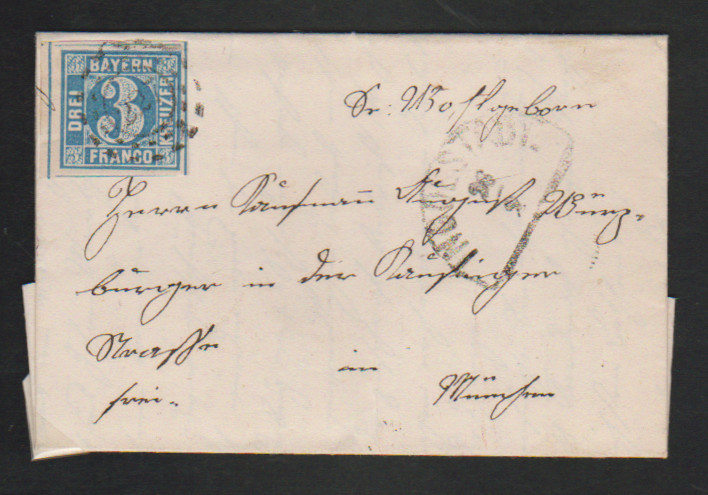 BAYERN
DREI
3
KREUZER
FRANCO
Sr: Wohlgeborn
Herrn Kaufmann August Würz-
burger in der Kaufinger
Strasse
in
frei.
München